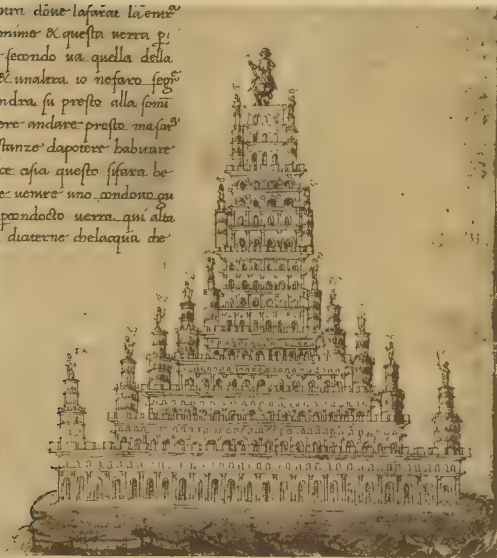 dove lasarai la entr
nime & questa verra p
secondo va quella della
& unaltra io nefaro segº
ndra su presto alla som
ere andare presto masarª
stanze dapotere habitare
ce cisia questo sifara be
e venire uno condotto qu
pcondocto verra qui alta
dicterne chelacqua che